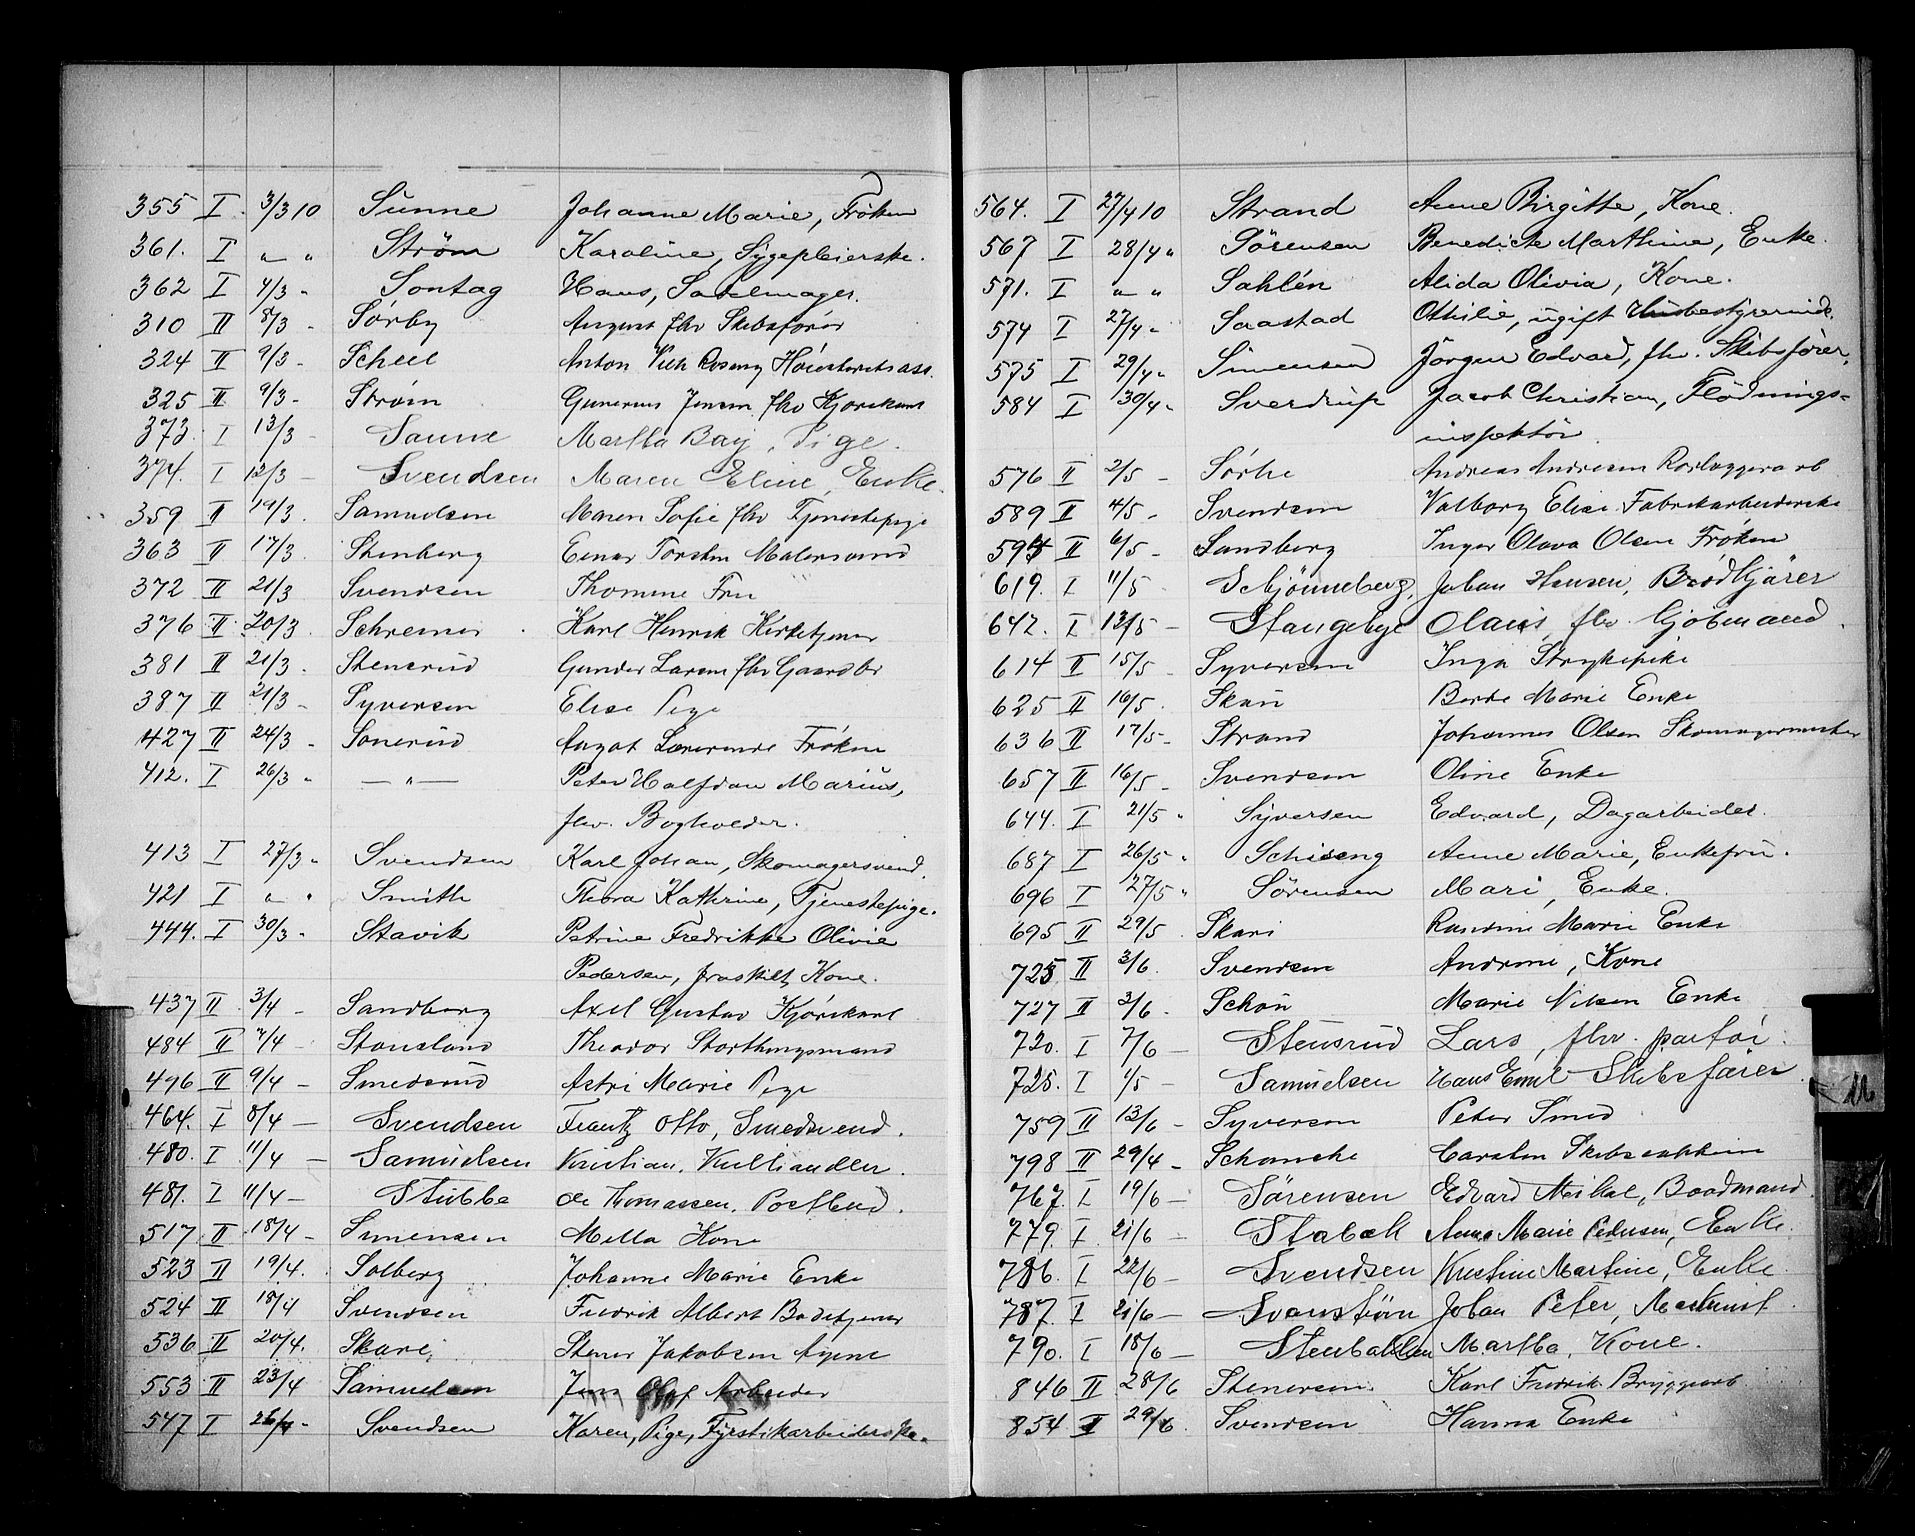 355 I 3/3 10 Sunne Johanne Marie, Frøken
361. I " " Strøm Karoline, Sygepleierske.
362 I 4/3 " Sontag Hans, Sadelmager.
310 II 8/3 - Sørby August fhv Skibsfører
324 II 9/3 - Scheel Anton Vilh Rosing Høiesteretsass.
325 II 9/3 - Strøm Gunerius Jensen fhv Kjørekarl
373. I 13/3 - Sanne Martha Bay, Pige.
374. I 12/3 - Svendsen Maren Eline, Enke.
359 II 19/3. Samuelsen Maren Sofie fhv Tjenestepige
363 II 17/3. Stenberg Einar Torsten Malersvend
372 II 21/3 Svendsen Thomine Fru
376 II 20/3. Schreiner Karl Henrik Kirketjener
381 II 21/3. Stensrud Gunder Larsen fhv Gaardbr
387 II 21/3 - Syversen Elise Pige
427 II 24/3 - Sonerud Aagot Lærerinde Frøken
412. I 26/3 " — " — Peter Halfdan Marius,
fhv. Bogholder.
413 I 27/3 " Svendsen Karl Johan, Skomagersvend.
421 I " " Smith Thora Kathrine, Tjenestepige.
444. I 30/3 - Stavik Petrine Fredrikke Olivie
Pedersen, fraskilt Kone.
437 II 3/4 - Sandberg Axel Gustav Kjørekarl
484 II 7/4 - Stousland Theodor Storthingsmand
496 II 9/4 - Smedsrud Astri Marie Pige
464. I 8/4 — Svendsen Frantz Otto, Smedsvend.
480. I 11/4 — Samuelsen Kristian. Kulhandler.
481. I 11/4 — Stubbe Ole Thomassen. Postbud.
517 II 18/4 - Simensen Mella Kone
523 II 19/4. Solberg Johanne Marie Enke
524 II 18/4 Svendsen Fredrik Albert Badetjener
536 II 20/4. Skarei Stener Jakobsen
553 II 23/4 Samuelsen Jens Olaf Arbeider
547 I 26/4 - Svendsen Karen, Pige, Fyrstikarbeiderske.
564. I 27/4 10 Strand Anne Birgitte, Kone.
567 I 28/4 " Sørensen Benedicte Marthine, Enke.
571. I " " Sahlén Alida Olivia, Kone.
574 I 27/4 " Saastad Othilie, ugift Husbestyrerinde.
575 I 29/4 " Simensen Jørgen Edvard, fhv. Skibsfører.
584 I 30/4 " Sverdrup Jacob Christian, Flødnings-
inspektør.
576 II 2/5 - Sørlie Andreas Andresen Rørlæggerarb
589 II 4/5 - Svendsen Valborg Elise Fabrikarbeiderske
594 II 6/5 - Sandberg Inger Olava Olsen Frøken
619. I 11/5 Schjønneberg, Johan Hansen, Brødkjører
642. I 13/5 - Stangebye Olaus, fhv. Kjøbmand.
614 II 15/5 - Syversen Inga Strykepike
625 II 16/5. Skau Berte Marie Enke
636 II 17/5 - Strand Johannes Olsen Skomagermester
657 II 16/5 - Svendsen Oline Enke
644. I 21/5 " Syversen Edvard, Dagarbeider.
687 I 26/5 " Schiøng Anne Marie, Enkefru.
696 I 27/5 " Sørensen Mari, Enke.
695 II 29/5. Skari Randine Marie Enke
725 II 3/6. Svendsen Andrine, Kone
727 II 3/6. Schou Marie Nilsen Enke
720. I 7/6 — Stensrud Lars, fhv. partør.
725. I 1/5 — Samuelsen Hans Emil Skibsfører
759 II 13/6 - Syversen Peter Smed
798 II 29/4 - Schanche Carsten Skibskaptein
767. I 19/6 — Sørensen Edvard Mikal, Baadmand.
779. I 21/6 - Stabæk Anne Marie Pedersen, Enke.
786. I 22/6 - Svendsen Kristine Martine, Enke.
787. I 21/6 - Svanstrøm Johan Peter, Maskinist.
790. I 18/6 — Stenbakken Martha, Kone.
846 II 28/6 Stenersen Karl Fredrik Bryggearb
854 I 29/6. Svendsen Hanna Enke